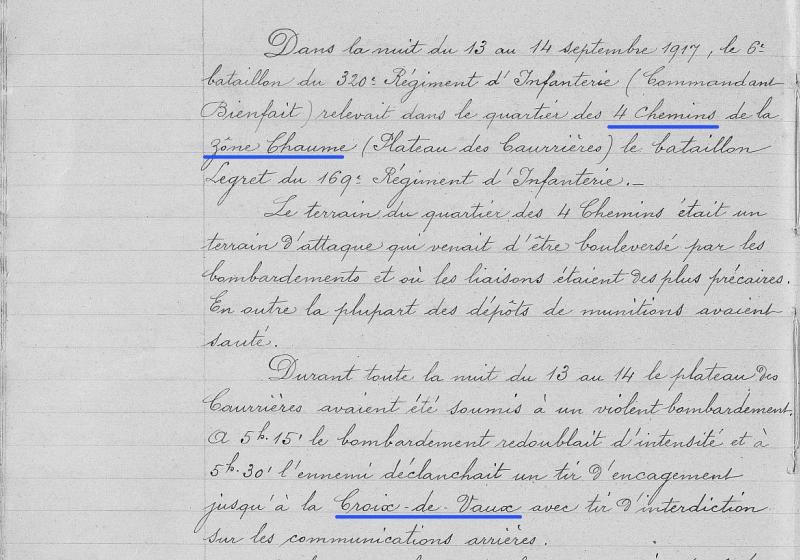 Dans la nuit du 13 au 14 septembre 1917, le 6e
bataillon du 320e Régiment d'Infanterie (Commandant
Bienfait) relevait dans le quartier des 4 Chemins de la
zône Chaume (Plateau des Caurrières) le bataillon
Legret du 169e Régiment d'Infanterie.-
Le terrain du quartier des 4 Chemins était un
terrain d'attaque qui venait d'être bouleversé par les
bombardements et où les liaisons étaient des plus précaires.
En outre la plupart des dépôts de munitions avaient
sauté.
Durant toute la nuit du 13 au 14 le plateau des
Caurrières avaient été soumis à un violent bombardement.
A 5h.15' le bombardement redoublait d'intensité et à
5h.30' l'ennemi déclanchait un tir d'encagement
jusqu'à la Croix-de-Vaux avec tir d'interdiction
sur les communications arrières.